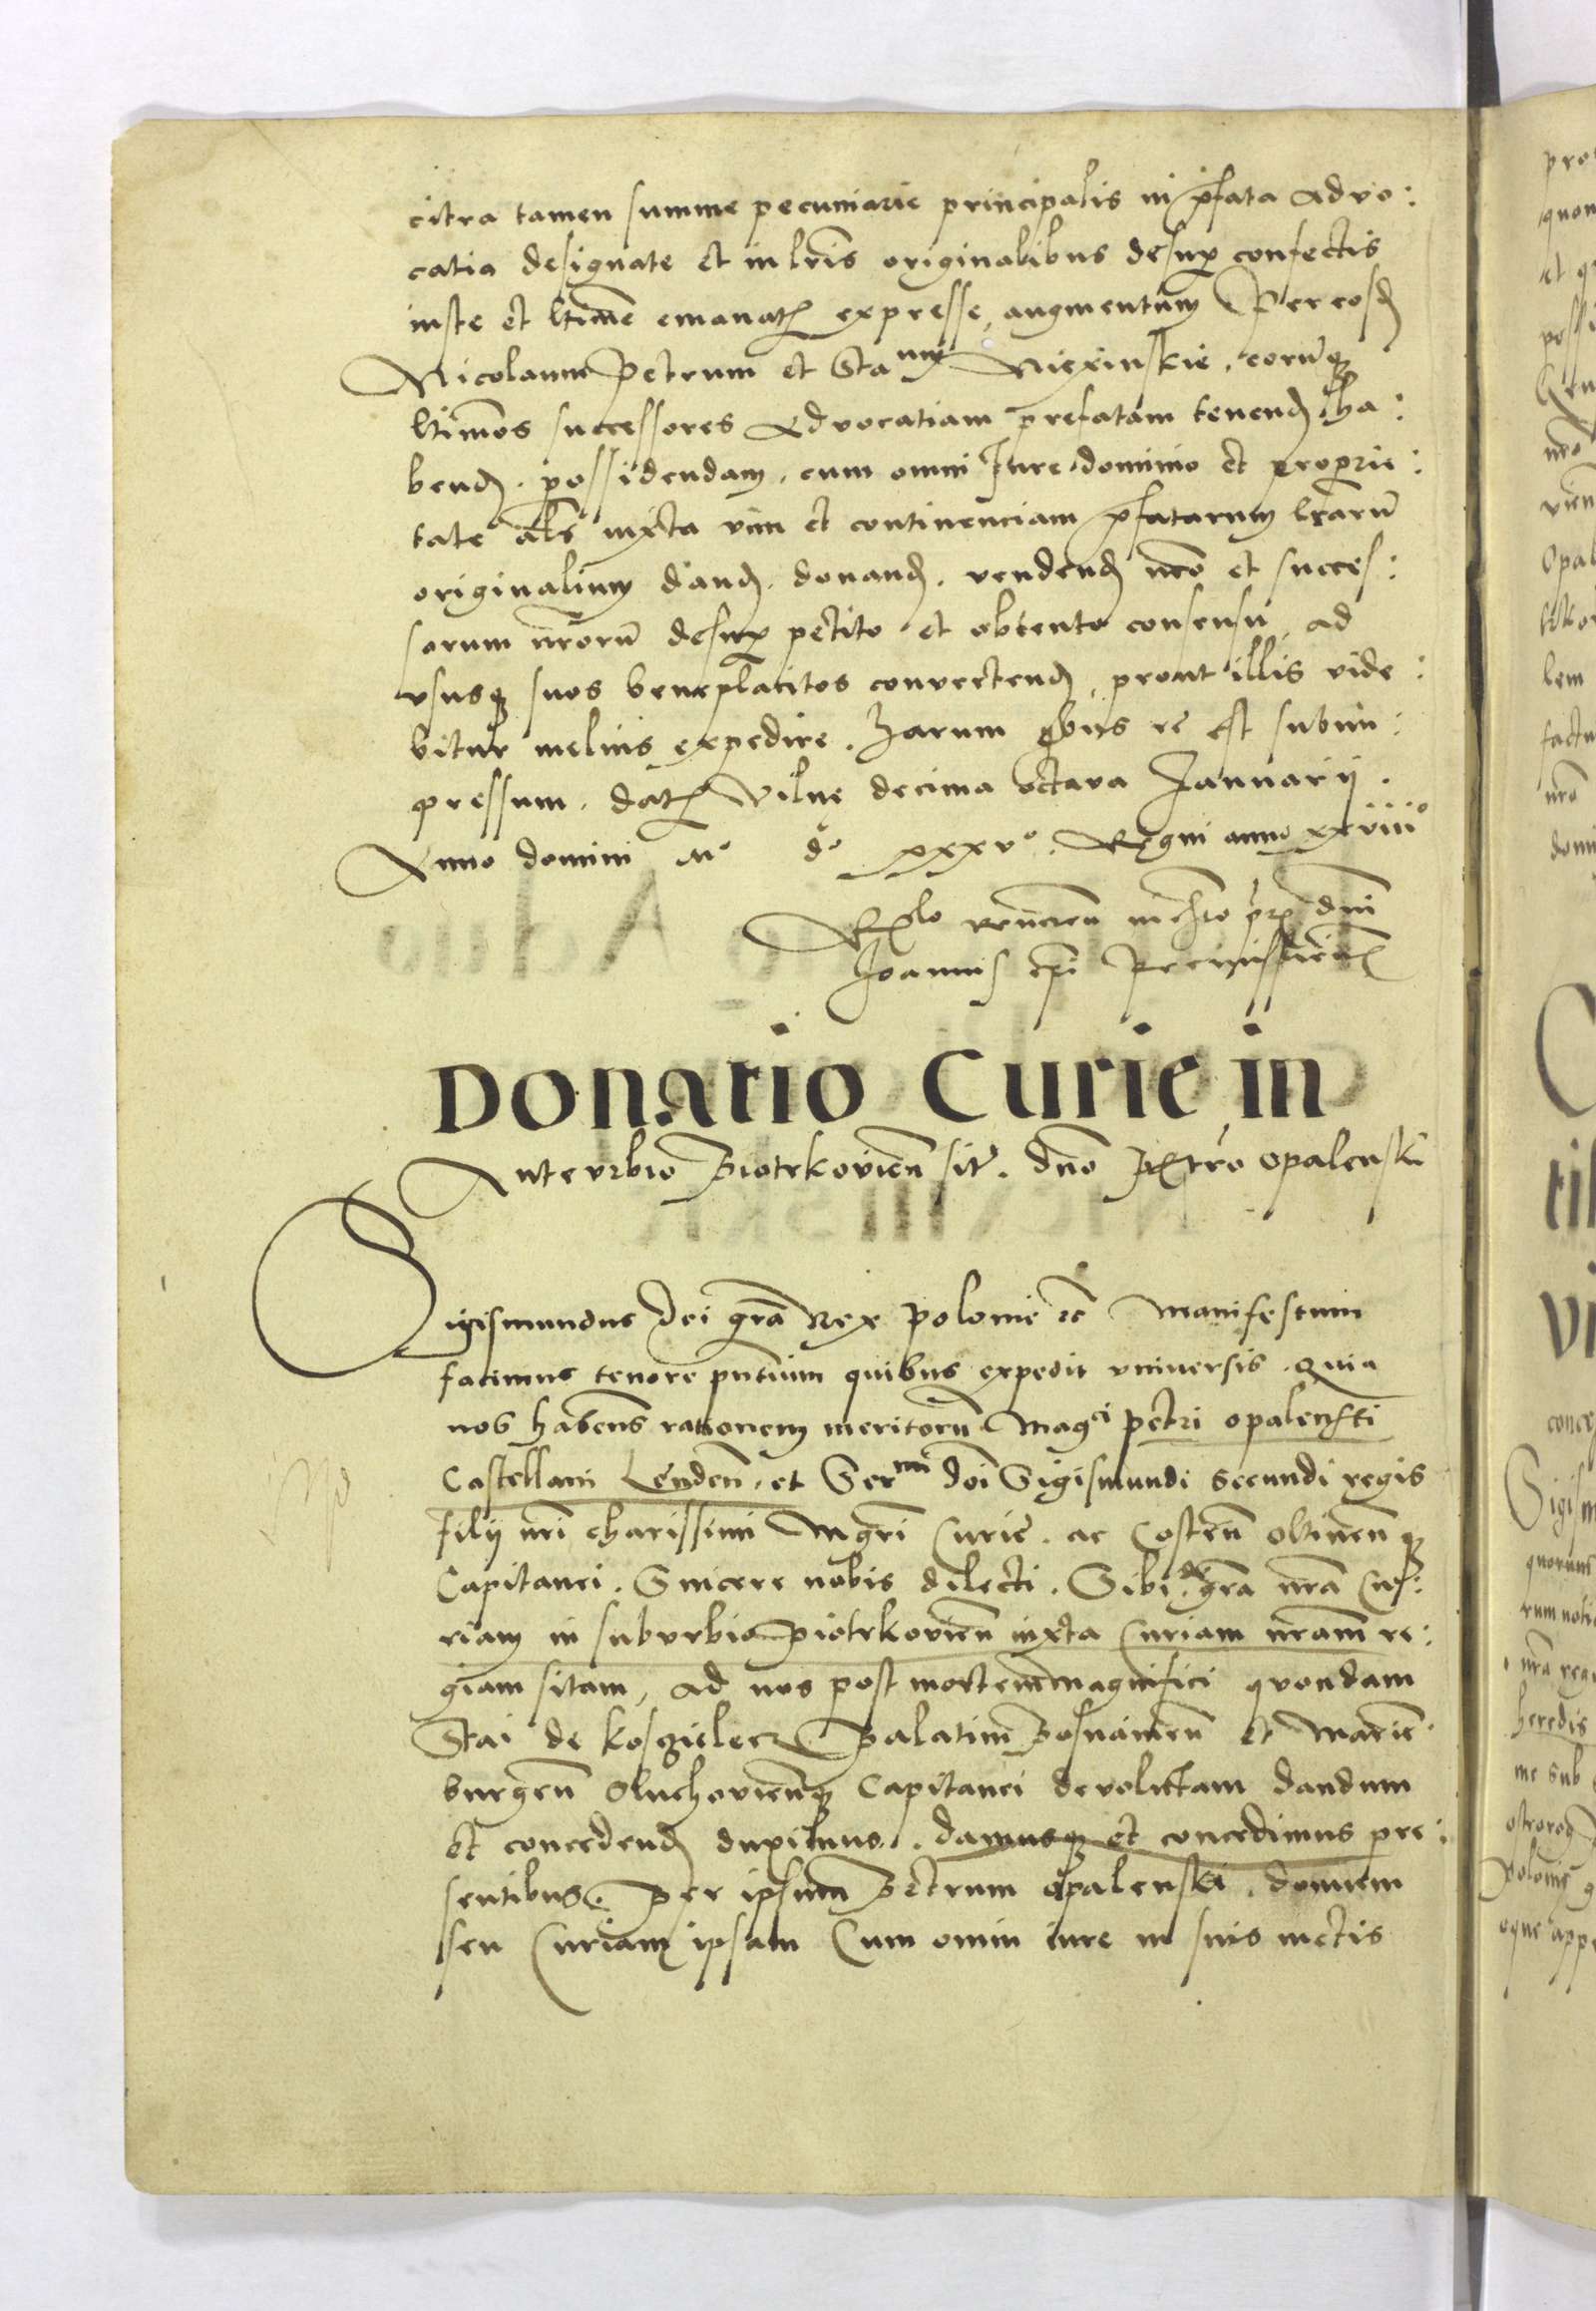 citra tamen summe pecuniarie principalis in p̃fata Advo:
catia designate et in lr̃is originalibus desup confectis
iuste et ltime emanat expresse, augmentum Per eosd
Nicolaum Petrum et Sta num Niexinskie, eorũq
ltimos successores Advocatiam prefatam tenend, ha:
bend, possidendam, cum omni Iure dominio et proprie:
tate als iuxta vim et continenciam p̃fatarum lr̃arũ
originalium dand, donand, vendend nr̃o et succes:
sorum nr̃orũ desup petito et obtento consensu, ad
vsusq suos beneplacitos convertend, prout illis vide:
bitur melius expedire. Harum qbus rc̃ est subim:
pressum. dat Vilne decima octava Ianuarij.
Anno domini Mº dº xxxvº. Regni anno xxviiiº
Rlo reveren in chro pr̃ dni
Joannis ep̃i Premislien
Donatio Curie in
Anteurbio Piotrkovien̄ sit. dno Petro Opalenski
Sigismundus dei gr̃a Rex polonie rc̃ Manifestum
facimus tenore pn̄tium quibus expedit vniversis. Quia
nos habens rationem meritorũ Magci petri opalensti
Castellani Lenden, et Ser mi doi Sigismundi secundi regis
filij nr̃i charissimi Mgr̃i Curie. ac Costen̄ Oltinen̄ q
Capitanei. Sincere nobis dilecti. Sibi de gr̃a nr̃a Cu:
riam in suburbio piotrkovien̄ iuxta Curiam nr̃am re:
giam sitam, ad nos post mortem magnifici quondam
Stai de kosczielecz Palatini Posnanien̄ et Marie:
burgen̄ Oluchovien̄q Capitanei devolutam dandum
et concedend duximus. damusq et concedimus pre:
sentibus. Per ipsum Petrum opalenski, domum
seu Curiam ipsam Cum omni iure in suis metis